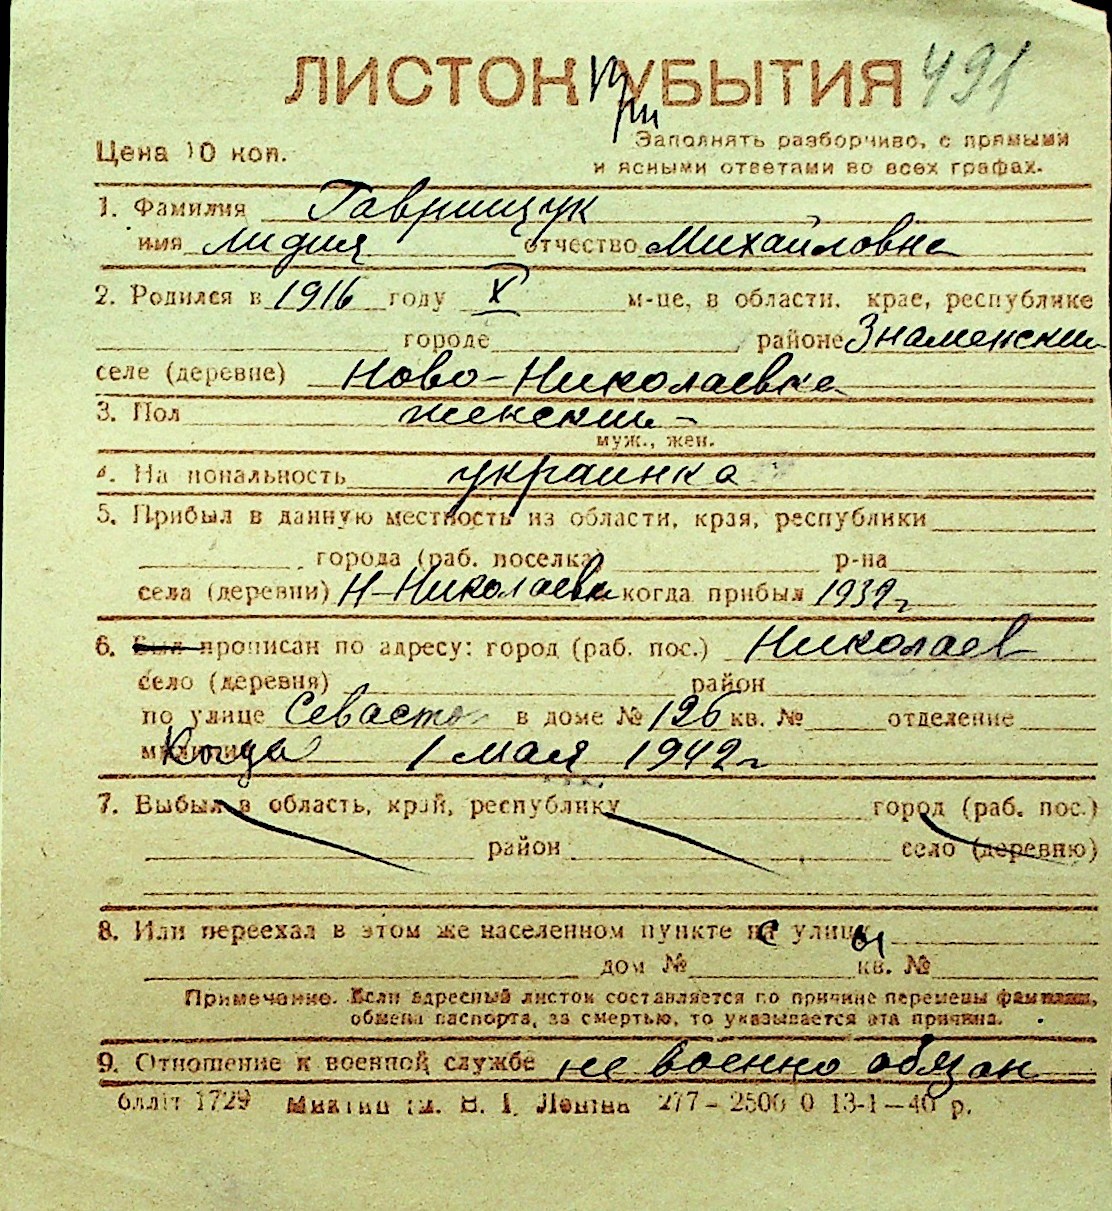 ЛИСТОК при УБЫТИЯ 491
Цена 10 коп.
Заполнять разборчиво, с прямыми
и ясными ответами во всех графах.
1. Фамилия Гаврищук
имя Лидия отчество Михайловна
2. Родился в 1916 году X м-це, в области, крае, республике
городе районе Знаменский
селе (деревне) Ново-Николаевка
3. Пол женский
муж., жен.
4. На иональность украинка
5. Прибыл в данную местность из области, края, республики
города (раб. поселка) р-на
села (деревни) Н-Николаевки когда прибыл 1939 г
6. Был прописан по адресу: город (раб. пос.) Николаев
село (деревня) район
по улице Севастоп в доме № 126 кв. № отделение
милиции Когда 1 мая 1942 г
7. Выбыл в область, край, республику город (раб. пос.)
район село (деревню)
8. Или переехал в этом же населенном пункте на с улицу ы
дом № кв. №
Примечание. Если адресный листок составляется по причине перемены фамилии,
обмена паспорта, за смертью, то указывается эта причина.
9. Отношение к военной службе не военно обязан
1729 В. І. Леніна 277-2500 0 13-1-40 р.